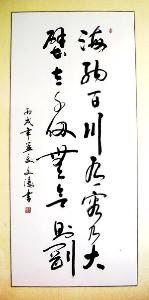 海納百川有容乃大
壁立千仞無欲則剛
丙戌年